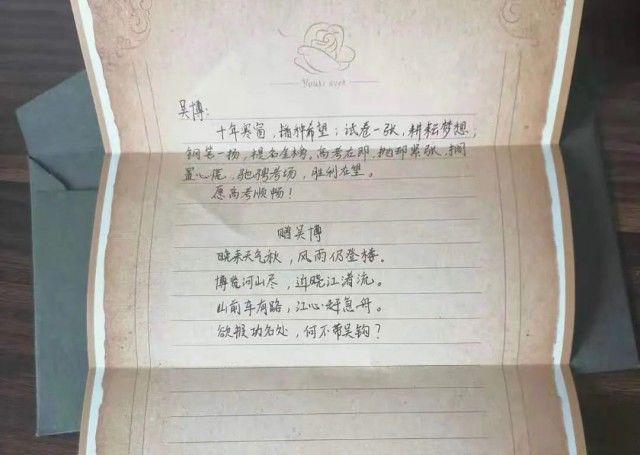 Yours ever
吴博:
十年寒窗,播种希望;试卷一张,耕耘梦想,
钢笔一扬,提名金榜。高考在即,抛却紧张,搁
置心慌,驰骋考场,胜利在望。
愿高考顺畅!
赠吴博
晚来天气秋,风雨仍登楼。
博览河山尽,近晓江渚流。
山前车有路,江心好急舟。
欲报功名处,何不带吴钩?